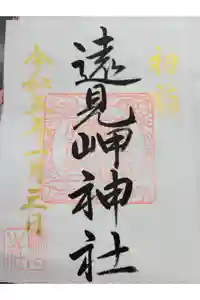 初詣
遠見岬神社
令和五年一月三日